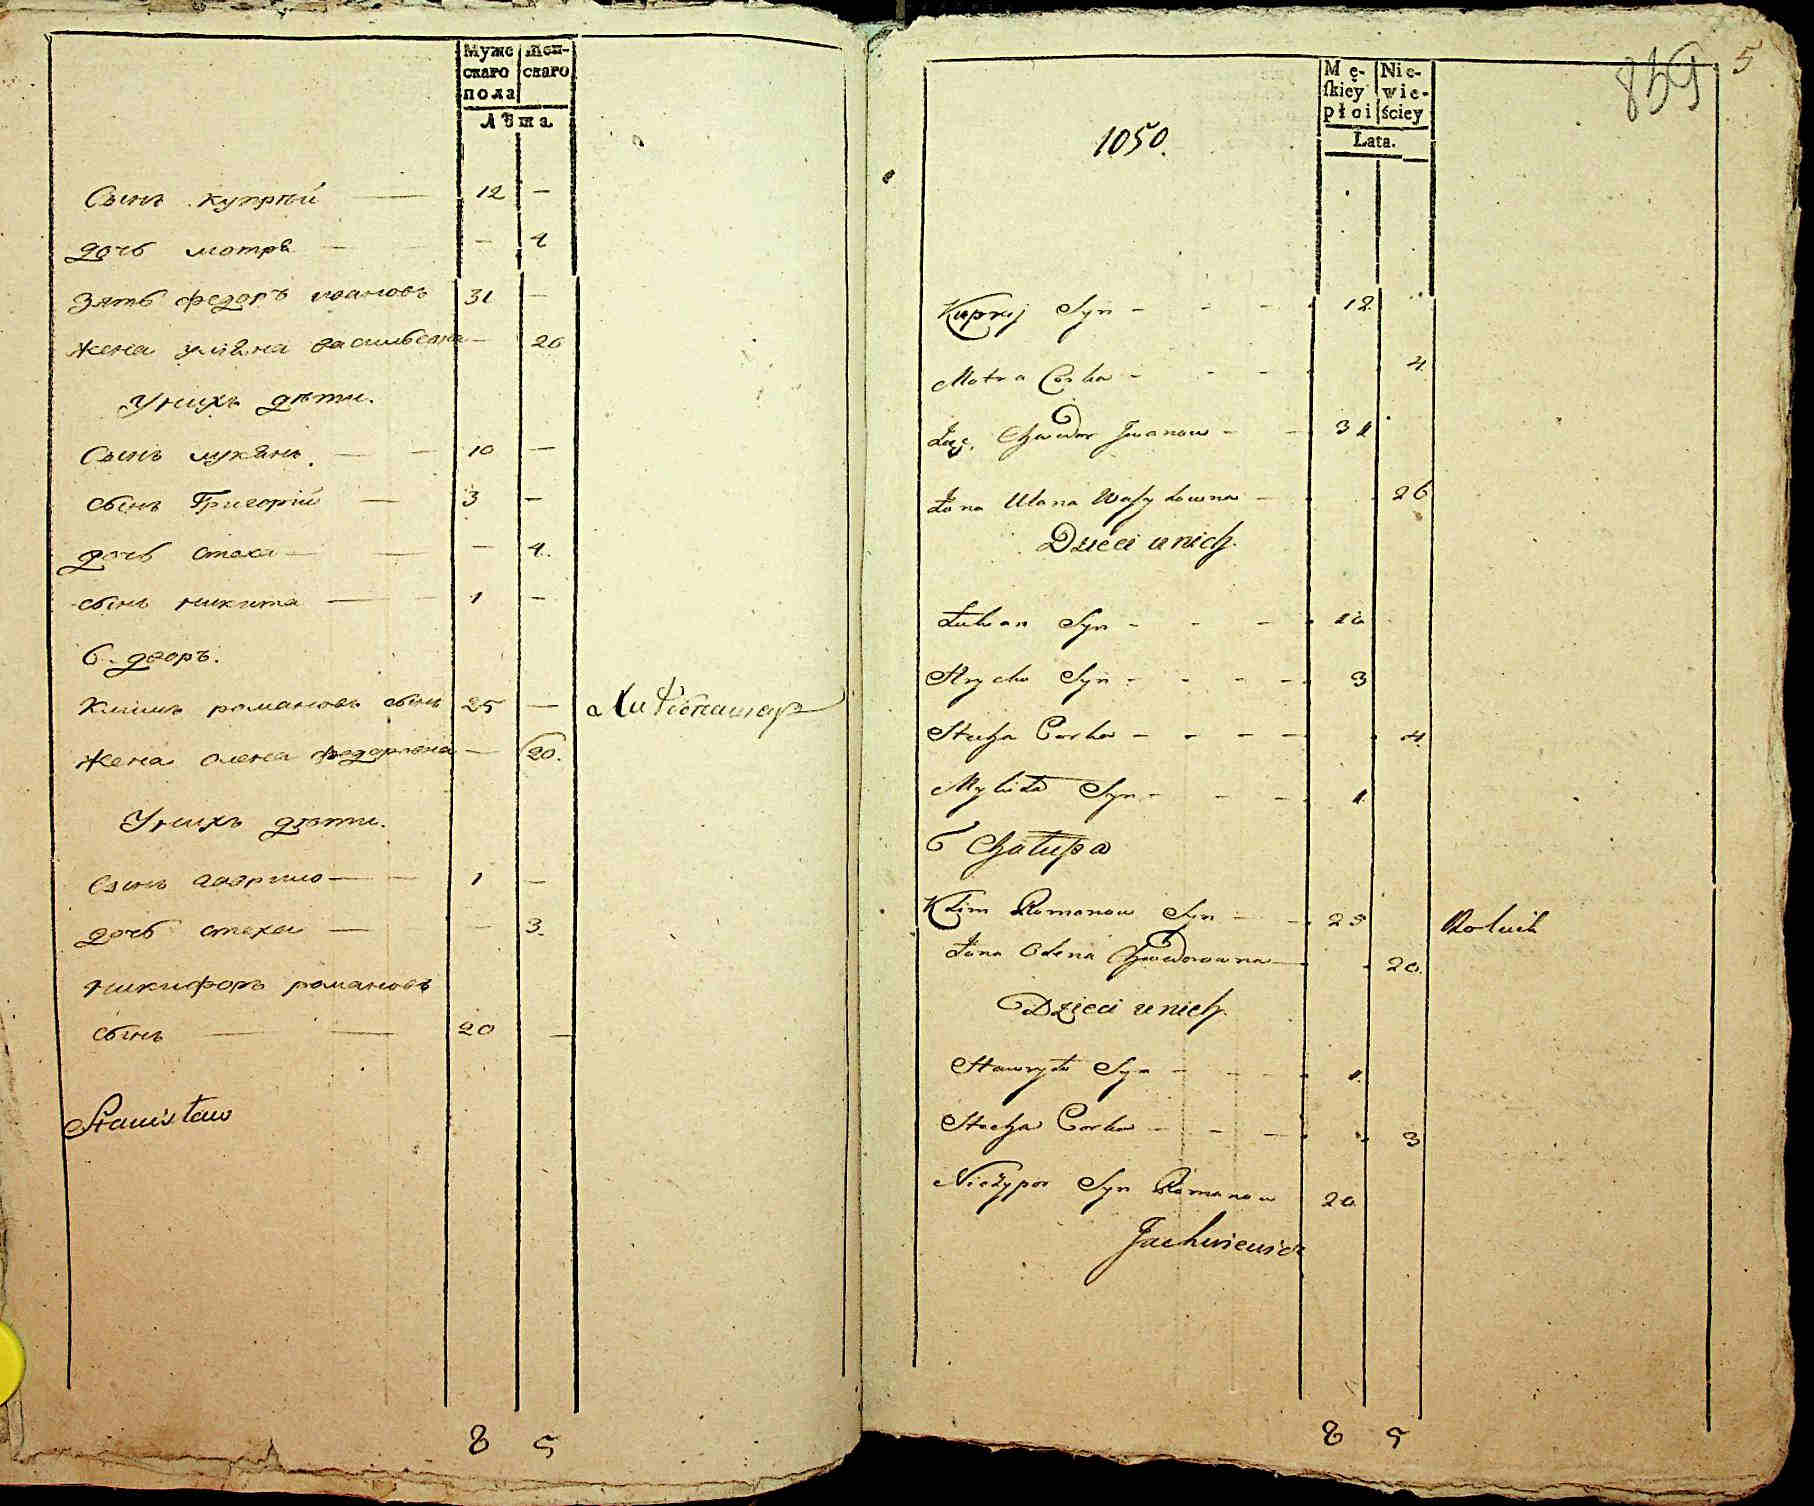 Муже Жен-
скаго скаго
пола
Лѣта.
Сынъ купрѣй — 12 —
дочь мотрѣ — — 4
Зять федоръ ивановъ 31 —
жена уляна васильевна — 26
Унихъ дѣти.
Сынъ лукянъ — — 10 —
сынъ Григорій — 3 —
дочь стеха — — — 4.
сынъ никита — — 1 —
6. дворъ.
Климъ романовъ сынъ 25 —
жена олена федоровна — 20.
Унихъ дѣти.
Сынъ гаврило — — 1 —
дочь стеха — — 3.
никифоръ романовъ
сынъ — — 20 —
Stanisław
8 5
859 5
Mę- Nie-
ſkiey wie-
płci ściey
Lata.
1050.
Kuprij Syn - - - 12
Motra Corka - - - 4
Zięć Chwedor Iwanow - - 31
Żona Ulana Wasylowna - 26
Dzieci u nich.
Łukian Syn - - - 10
Hrycko Syn - - - - 3
Stecha Corka - - - - 4
Mykita Syn - - - 1
6 Chałupa
Klim Romanow Syn - - 25 Rolnik
Żona Olena Chwedorowna - 20.
Dzieci u nich.
Hawryło Syn - - - - 1.
Stecha Corka - - - 3
Niczypor Syn Romanow 20
Jackiewicz
8 5